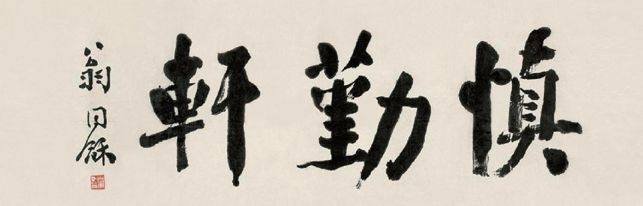 慎勤軒
翁同龢